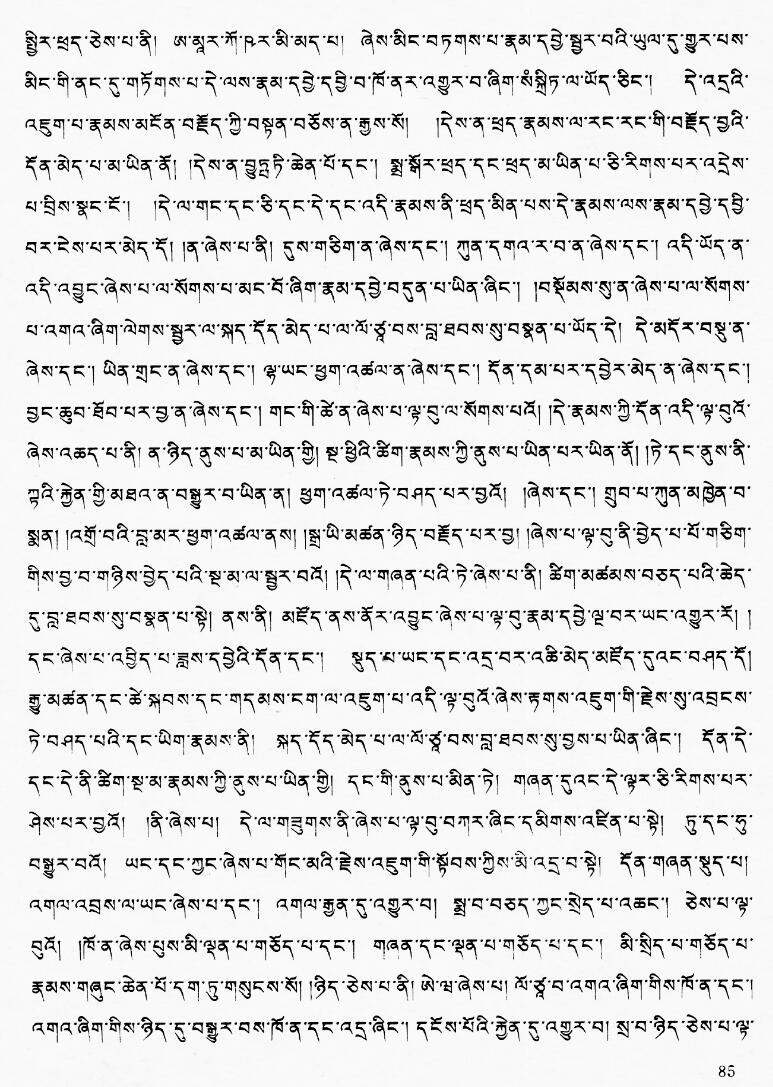 སྤྱིར་ཕྲད་ཅེས་པ་ནི། ཨ་མཱར་ཀོ་ཥར་མི་མད་པ། ཞེས་མིང་བཏགས་པ་རྣམ་དབྱེ་སྦྱར་བའི་ཡུལ་དུ་གྱུར་པས་
མིང་གི་ནང་དུ་གཏོགས་པ་དེ་ལས་རྣམ་དབྱེ་དབྱི་བ་ཁོ་ནར་འགྱུར་བ་ཞིག་སཾསྐྲིཏ་ལ་ཡོད་ཅིང་། དེ་འདྲའི་
འཇུག་པ་རྣམས་མངོན་བརྗོད་ཀྱི་བསྟན་བཅོས་ན་རྒྱས་སོ། །དེས་ན་ཕྲད་རྣམས་ལ་རང་རང་གི་བརྗོད་བྱའི་
དོན་མེད་པ་མ་ཡིན་ནོ། །དེས་ན་བྱཱུཏྤཏྟི་ཆེན་པོ་དང་། སྨྲ་སྒོར་ཕྲད་དང་ཕྲད་མ་ཡིན་པ་ཅི་རིགས་པར་འདྲེས་
པ་བྲིས་སྣང་ངོ་། །དེ་ལ་གང་དང་ཅི་དང་དེ་དང་འདི་རྣམས་ནི་ཕྲད་མིན་པས་དེ་རྣམས་ལས་རྣམ་དབྱེ་དབྱི་
བར་ངེས་པར་མེད་དོ། །ན་ཞེས་པ་ནི། དུས་གཅིག་ན་ཞེས་དང་། ཀུན་དགའ་ར་བ་ན་ཞེས་དང་། འདི་ཡོད་ན་
འདི་འབྱུང་ཞེས་པ་ལ་སོགས་པ་མང་པོ་ཞིག་རྣམ་དབྱེ་བདུན་པ་ཡིན་ཞིང་། །བསྡོམས་སུ་ན་ཞེས་པ་ལ་སོགས་
པ་འགའ་ཞིག་ལེགས་སྦྱར་ལ་སྐད་དོད་མེད་པ་ལ་ལོ་ཙཱ་བས་བླ་ཐབས་སུ་བསྣན་པ་ཡོད་དེ། དེ་མདོར་བསྡུ་ན་
ཞེས་དང་། ཡིན་གྲང་ན་ཞེས་དང་། ལྷ་ཡང་ཕྱག་འཚལ་ན་ཞེས་དང་། དོན་དམ་པར་དབྱེར་མེད་ན་ཞེས་དང་།
བྱང་ཆུབ་ཐོབ་པར་བྱ་ན་ཞེས་དང་། གང་གི་ཚེ་ན་ཞེས་པ་ལྟ་བུ་ལ་སོགས་པའོ། །དེ་རྣམས་ཀྱི་དོན་འདི་ལྟ་བུའོ་
ཞེས་འཆད་པ་ནི། ན་ཉིད་ནུས་པ་མ་ཡིན་གྱི། སྔ་ཕྱིའི་ཚིག་རྣམས་ཀྱི་ནུས་པ་ཡིན་པར་ཡིན་ནོ། །ཏེ་དང་ནུས་ནི་
ཀྟའི་རྐྱེན་གྱི་མཐའ་ན་བསྒྱུར་བ་ཡིན་ན། ཕྱག་འཚལ་ཏེ་བཤད་པར་བྱའོ། །ཞེས་དང་། གྲུབ་པ་ཀུན་མཁྱེན་བ་
སྨན། །འགྲོ་བའི་བླ་མར་ཕྱག་འཚལ་ནས། །སྒྲ་ཡི་མཚན་ཉིད་བརྗོད་པར་བྱ། །ཞེས་པ་ལྟ་བུ་ནི་བྱེད་པ་པོ་གཅིག་
གིས་བྱ་བ་གཉིས་བྱེད་པའི་སྔ་མ་ལ་སྦྱར་བའོ། །དེ་ལ་གཞན་པའི་ཏེ་ཞེས་པ་ནི། ཚིག་མཚམས་བཅད་པའི་ཆེད་
དུ་བླ་ཐབས་སུ་བསྣན་པ་སྟེ། ནས་ནི། མཛོད་ནས་ནོར་འབྱུང་ཞེས་པ་ལྟ་བུ་རྣམ་དབྱེ་ལྔ་བར་ཡང་འགྱུར་རོ། །
དང་ཞེས་པ་འབྱེད་པ་ཟླས་དབྱེའི་དོན་དང་། སྡུད་པ་ཡང་དང་འདྲ་བར་འཆི་མེད་མཛོད་དུའང་བཤད་དོ།
རྒྱུ་མཚན་དང་ཚེ་སྐབས་དང་གདམས་ངག་ལ་འཇུག་པ་འདི་ལྟ་བུའོ་ཞེས་རྟགས་འཇུག་གི་རྗེས་སུ་འབྲངས་
ཏེ་བཤད་པའི་དང་ཡིག་རྣམས་ནི། སྐད་དོད་མེད་པ་ལ་ལོ་ཙཱ་བས་བླ་ཐབས་སུ་བྱས་པ་ཡིན་ཞིང་། དོན་དེ་
དང་དེ་ནི་ཚིག་སྔ་མ་རྣམས་ཀྱི་ནུས་པ་ཡིན་གྱི། དང་གི་ནུས་པ་མིན་ཏེ། གཞན་དུའང་དེ་ལྟར་ཅི་རིགས་པར་
ཤེས་པར་བྱའོ། །ནི་ཞེས་པ། དེ་ལ་གཟུགས་ནི་ཞེས་པ་ལྟ་བུ་བཀར་ཞིང་དམིགས་འཛིན་པ་སྟེ། ཏུ་དང་ཧུ་
བསྒྱུར་བའོ། ཡང་དང་ཀྱང་ཞེས་པ་གོང་མའི་རྗེས་འཇུག་གི་སྟོབས་ཀྱིས་མི་འདྲ་བ་སྟེ། དོན་གཞན་སྡུད་པ།
འགལ་འབྲས་ལ་ཡང་ཞེས་པ་དང་། འགལ་རྒྱན་དུ་འགྱུར་བ། སྨྲ་བ་བཅད་ཀྱང་སྲེད་པ་འཆང་། ཅེས་པ་ལྟ་
བུའོ། །ཁོ་ན་ཞེས་པུས་མི་ལྡན་པ་གཅོད་པ་དང་། གཞན་དང་ལྡན་པ་གཅོད་པ་དང་། མི་སྲིད་པ་གཅོད་པ་
རྣམས་གཞུང་ཆེན་པོ་དག་ཏུ་གསུངས་སོ། །ཉིད་ཅེས་པ་ནི། ཨེ་ཝ་ཞེས་པ། ལོ་ཙཱ་བ་འགའ་ཞིག་གིས་ཁོ་ན་དང་།
འགའ་ཞིག་གིས་ཉིད་དུ་བསྒྱུར་བས་ཁོ་ན་དང་འདྲ་ཞིང་། དངོས་པོའི་རྐྱེན་དུ་འགྱུར་བ། སྲ་བ་ཉིད་ཅེས་པ་ལྟ་
85